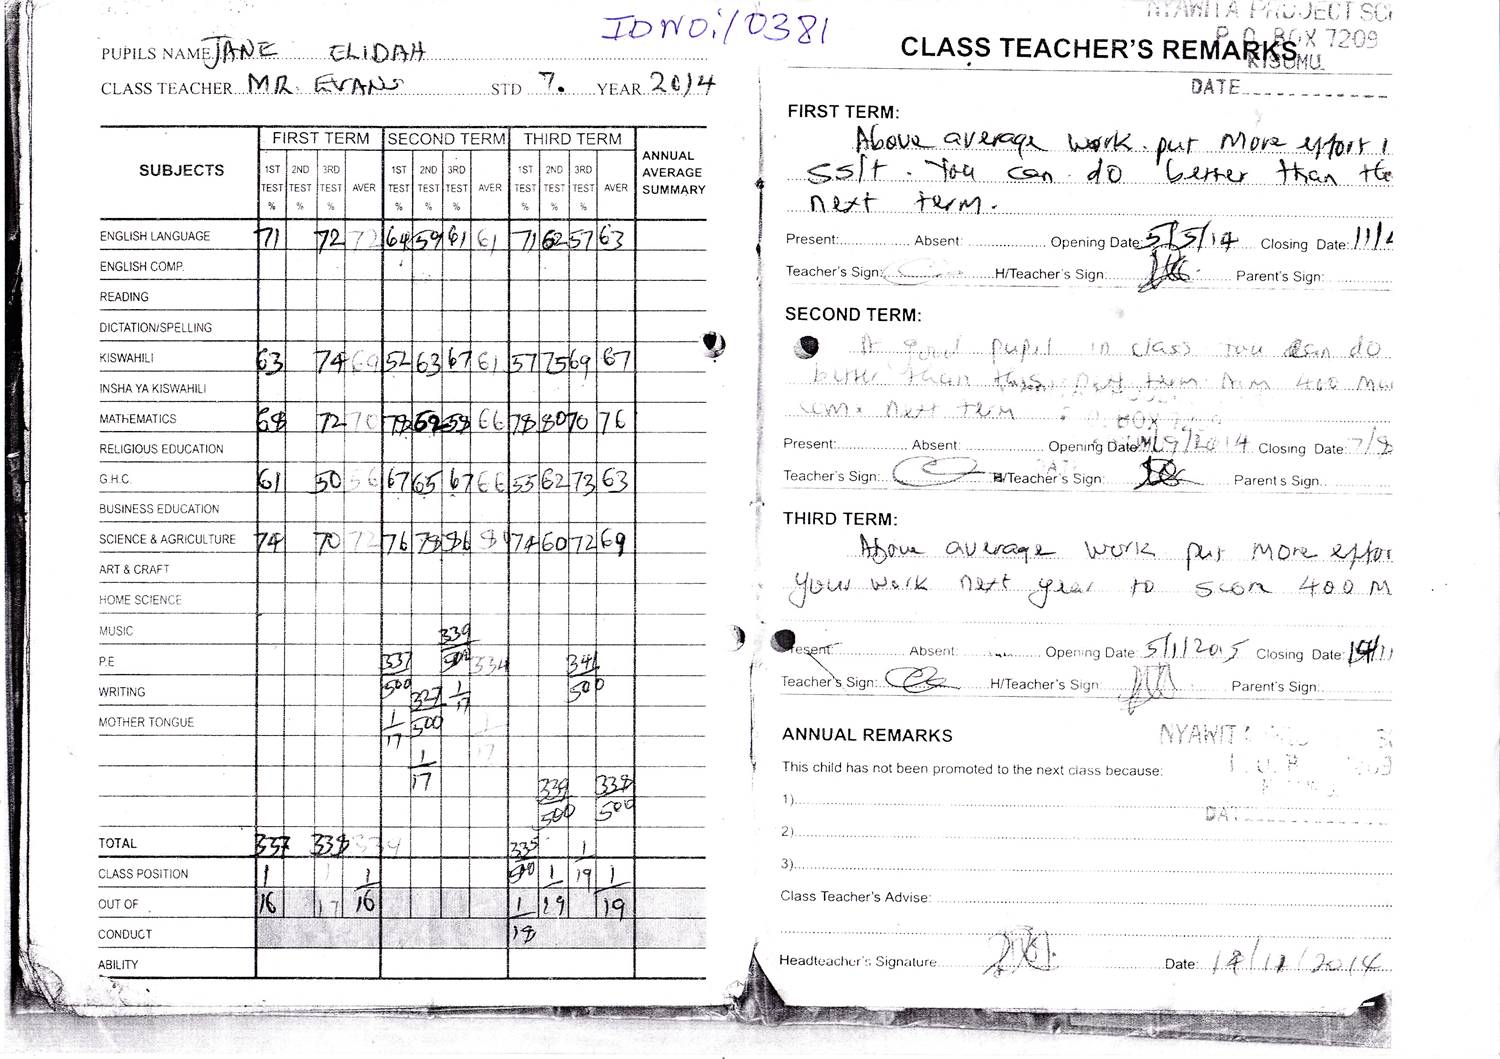 IDNO:/0381
PUPILS NAME JANE ELIDAH
CLASS TEACHER MR. EVANS STD 7. YEAR 2014
SUBJECTS FIRST TERM SECOND TERM THIRD TERM ANNUAL AVERAGE SUMMARY
1ST TEST % 2ND TEST % 3RD TEST % AVER 1ST TEST % 2ND TEST % 3RD TEST % AVER 1ST TEST % 2ND TEST % 3RD TEST % AVER
ENGLISH LANGUAGE 71 72 72 64 59 61 61 71 62 57 63
ENGLISH COMP.
READING
DICTATION/SPELLING
KISWAHILI 63 74 69 52 63 67 61 57 75 69 67
INSHA YA KISWAHILI
MATHEMATICS 68 72 70 78 62 58 66 78 80 70 76
RELIGIOUS EDUCATION
G.H.C. 61 50 56 67 65 67 66 55 62 73 63
BUSINESS EDUCATION
SCIENCE & AGRICULTURE 74 70 72 76 78 86 74 60 72 69
ART & CRAFT
HOME SCIENCE
MUSIC 339
P.E 337 500 334 341
WRITING 500 327 1 17 500
MOTHER TONGUE 1 17 500 1 17
1 17
339 500 338 500
TOTAL 337 338 334 335 1
CLASS POSITION 1 1 1 500 1 19 1
OUT OF 16 17 16 1 19 19
CONDUCT 18
ABILITY
NYAWITA PROJECT SC
P.O. BOX 7209
KISUMU
DATE
CLASS TEACHER'S REMARKS
FIRST TERM:
Above average work. put more effort i
ss/t. You can do better than the
next term.
Present: Absent: Opening Date: 5/5/14 Closing Date: 11/4
Teacher's Sign: H/Teacher's Sign: Parent's Sign:
SECOND TERM:
A good pupil in class You can do
better than this next term Aim 400 Ma
next term
BOX 72
Present: Absent: Opening Date /9/2014 Closing Date: 7/8
Teacher's Sign: H/Teacher's Sign: Parent s Sign..
THIRD TERM:
Above average work put more effor
your work next year to score 400 M
Present: Absent: Opening Date: 5/1/2015 Closing Date: 14/11
Teacher's Sign: H/Teacher's Sign: Parent's Sign:
ANNUAL REMARKS
NYAWIT
This child has not been promoted to the next class because:
1)
DA
2)
3)
Class Teacher's Advise:
Headteacher's Signature Date: 14/11/2014